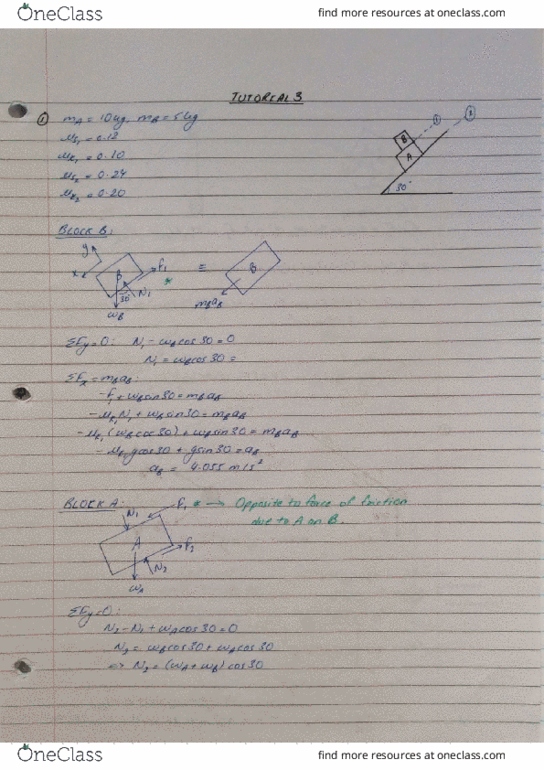 OneClass
find more resources at oneclass.com
TUTORIAL 3
① mA = 10kg, mB = 5kg
μs₁ = 0.12
μk₁ = 0.10
μs₂ = 0.24
μk₂ = 0.20
B
A
①
②
30°
BLOCK B:
y
x
B
F₁
N₁
30
wB
*
≡
B
mBaB
ΣFy=0: N₁ - wBcos30 = 0
N₁ = wBcos30 =
ΣFx = mBaB:
-F₁ + wBsin30 = mBaB
-μk₁N₁ + wBsin30 = mBaB
-μk₁(wBcos30) + wBsin30 = mBaB
-μk₁gcos30 + gsin30 = aB
aB = 4.055 m/s²
BLOCK A:
F₁ * → Opposite to force of friction
due to A on B.
N₁
A
F₂
N₂
wA
ΣFy=0:
N₂ - N₁ + wAcos30 = 0
N₂ = wBcos30 + wAcos30
=> N₂ = (wA + wB) cos30
OneClass
find more resources at oneclass.com